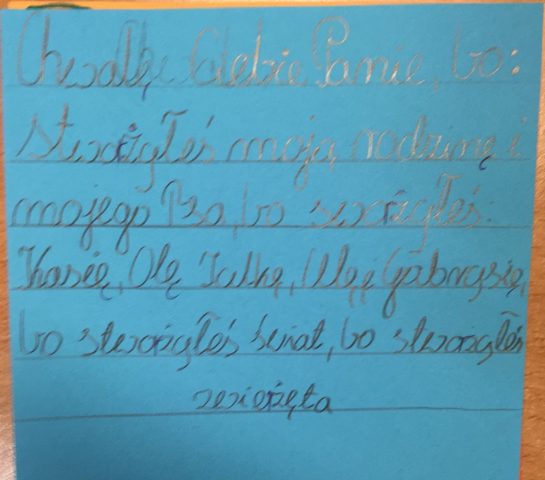 Chwalę Ciebie Panie, bo:
stworzyłeś moją rodzinę i
mojego Psa, bo stworzyłeś:
Kasię, Olę Julkę, Ulę i Gabrysię,
bo stworzyłeś świat, bo stworzyłeś
zwierzęta